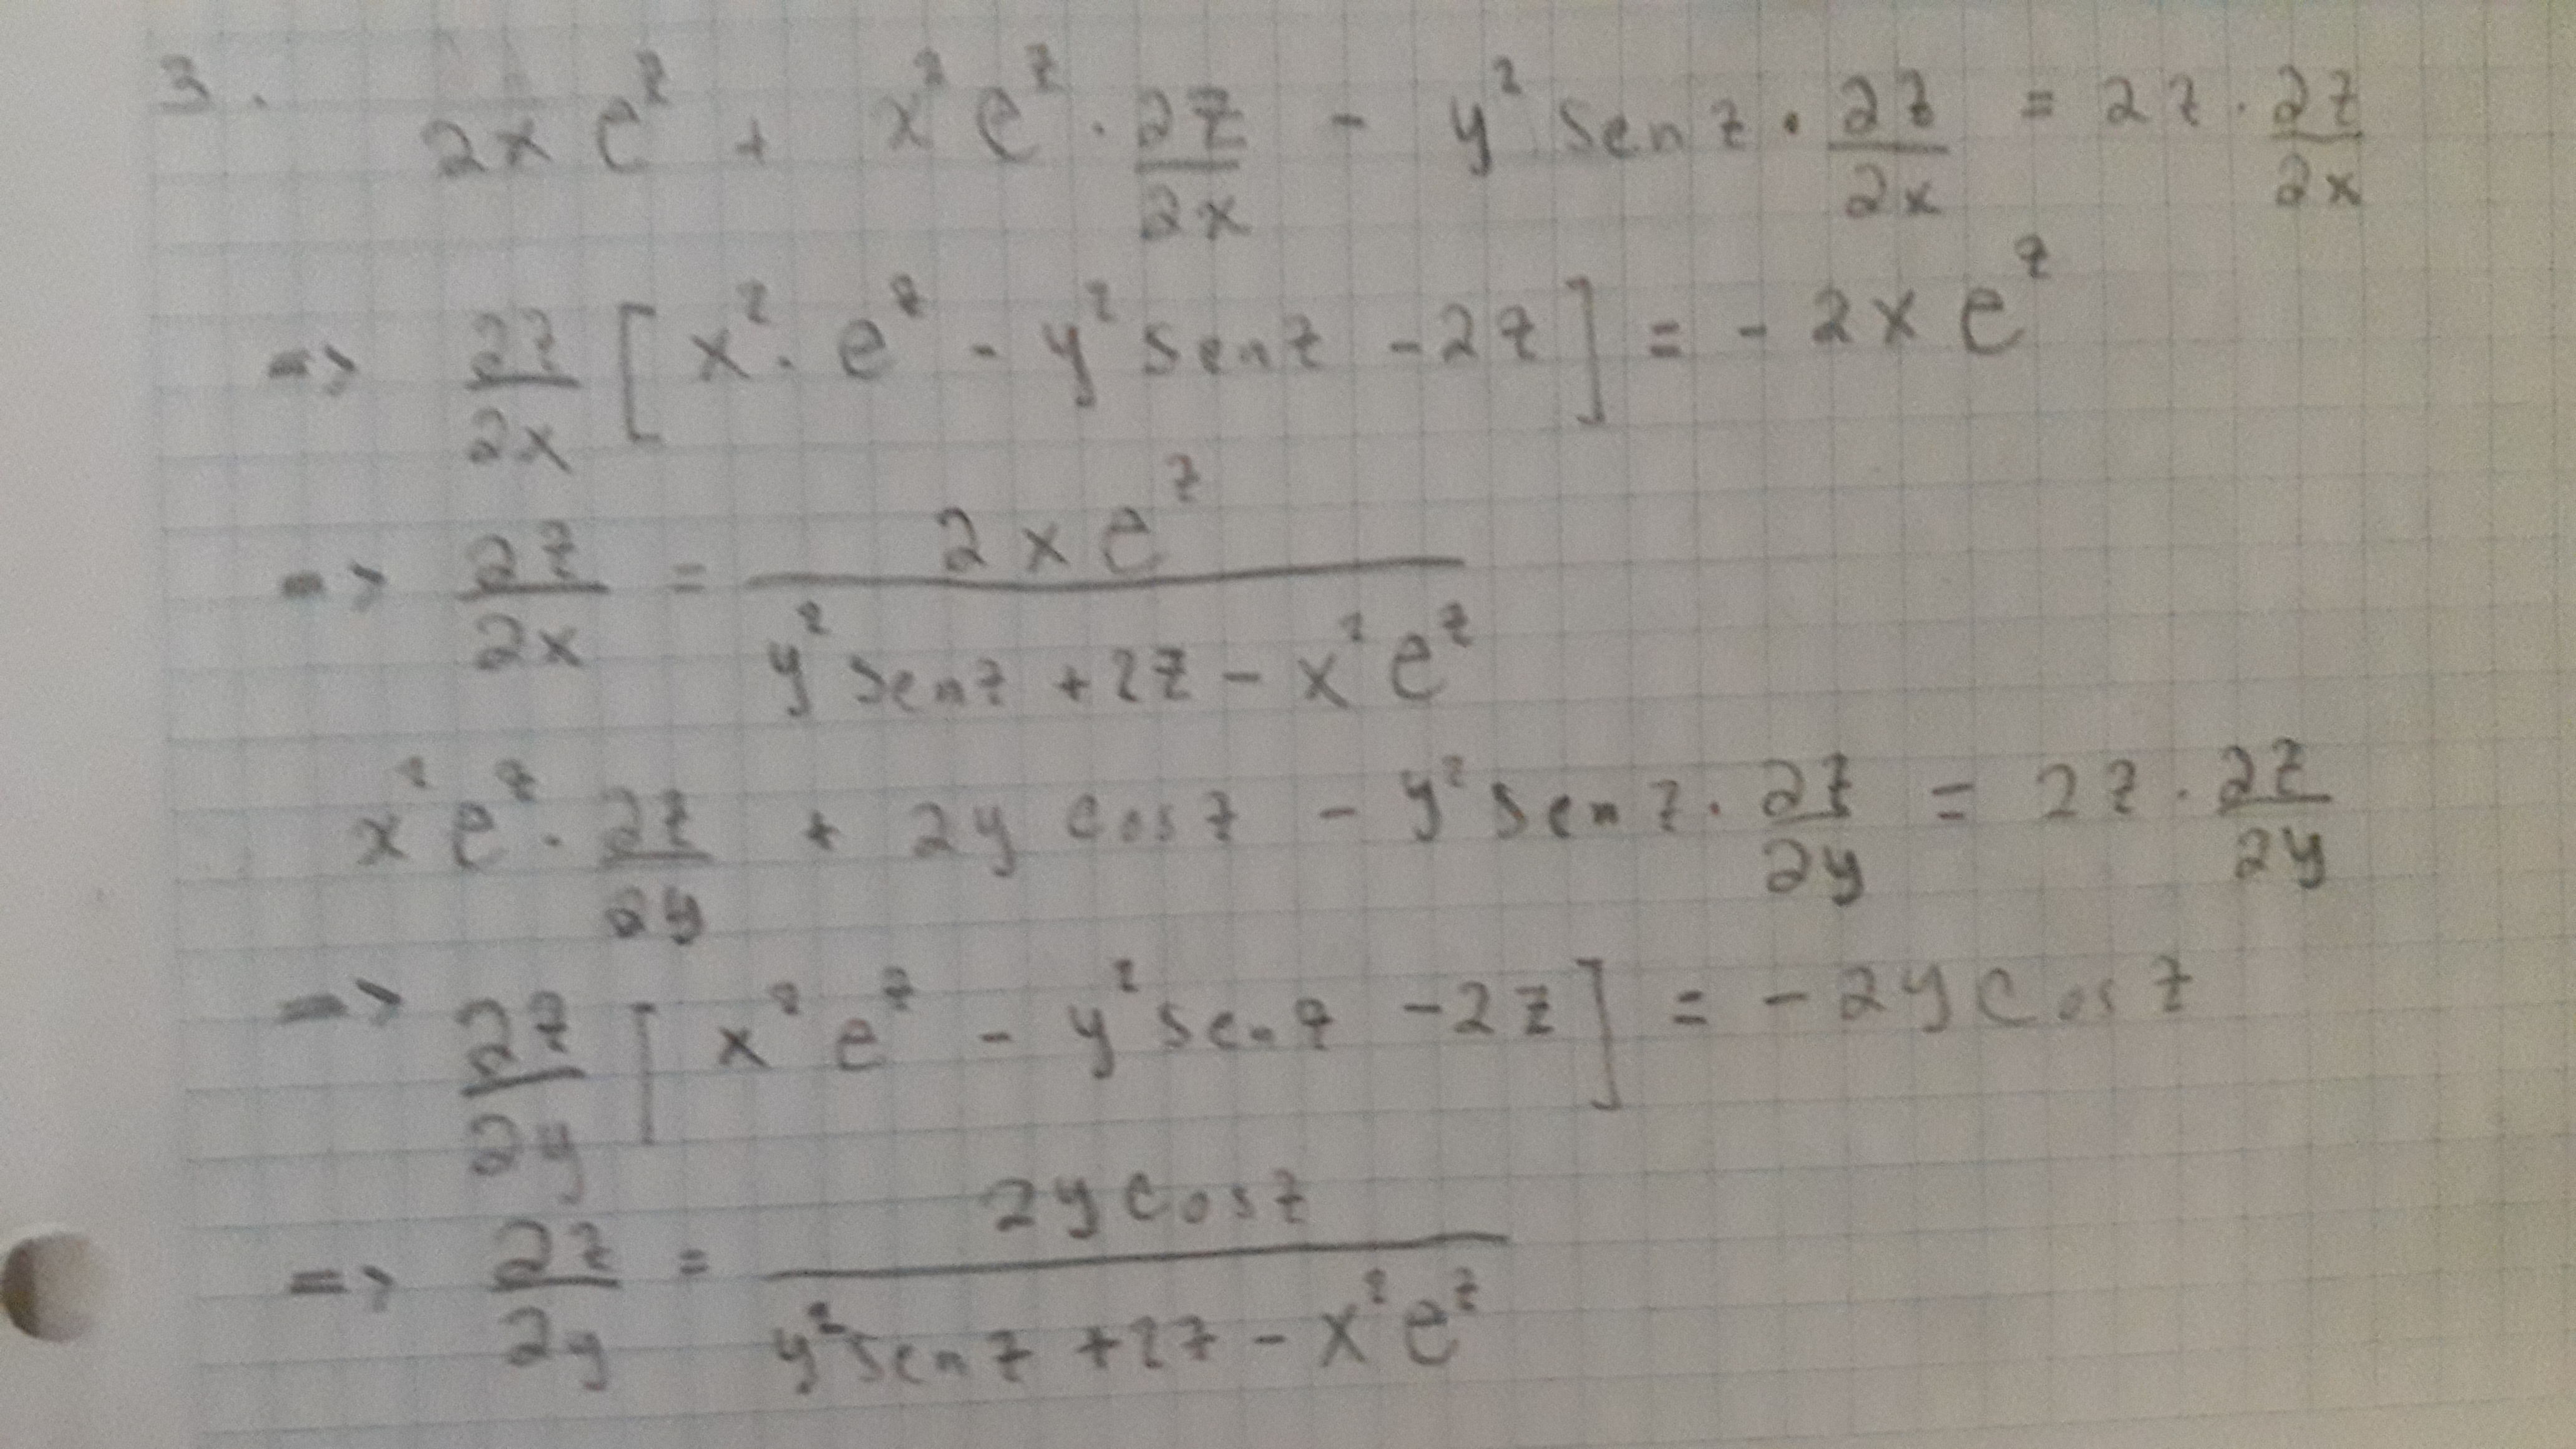 3. 2x e^z + x² e^z · ∂z/∂x - y² sen z · ∂z/∂x = 2z · ∂z/∂x
=> ∂z/∂x [x² · e^z - y² sen z - 2z] = - 2x e^z
=> ∂z/∂x = 2x e^z / y² sen z + 2z - x² e^z
x² e^z · ∂z/∂y + 2y cos z - y² sen z · ∂z/∂y = 2z · ∂z/∂y
=> ∂z/∂y [x² e^z - y² sen z - 2z] = - 2y cos z
=> ∂z/∂y = 2y cos z / y² sen z + 2z - x² e^z